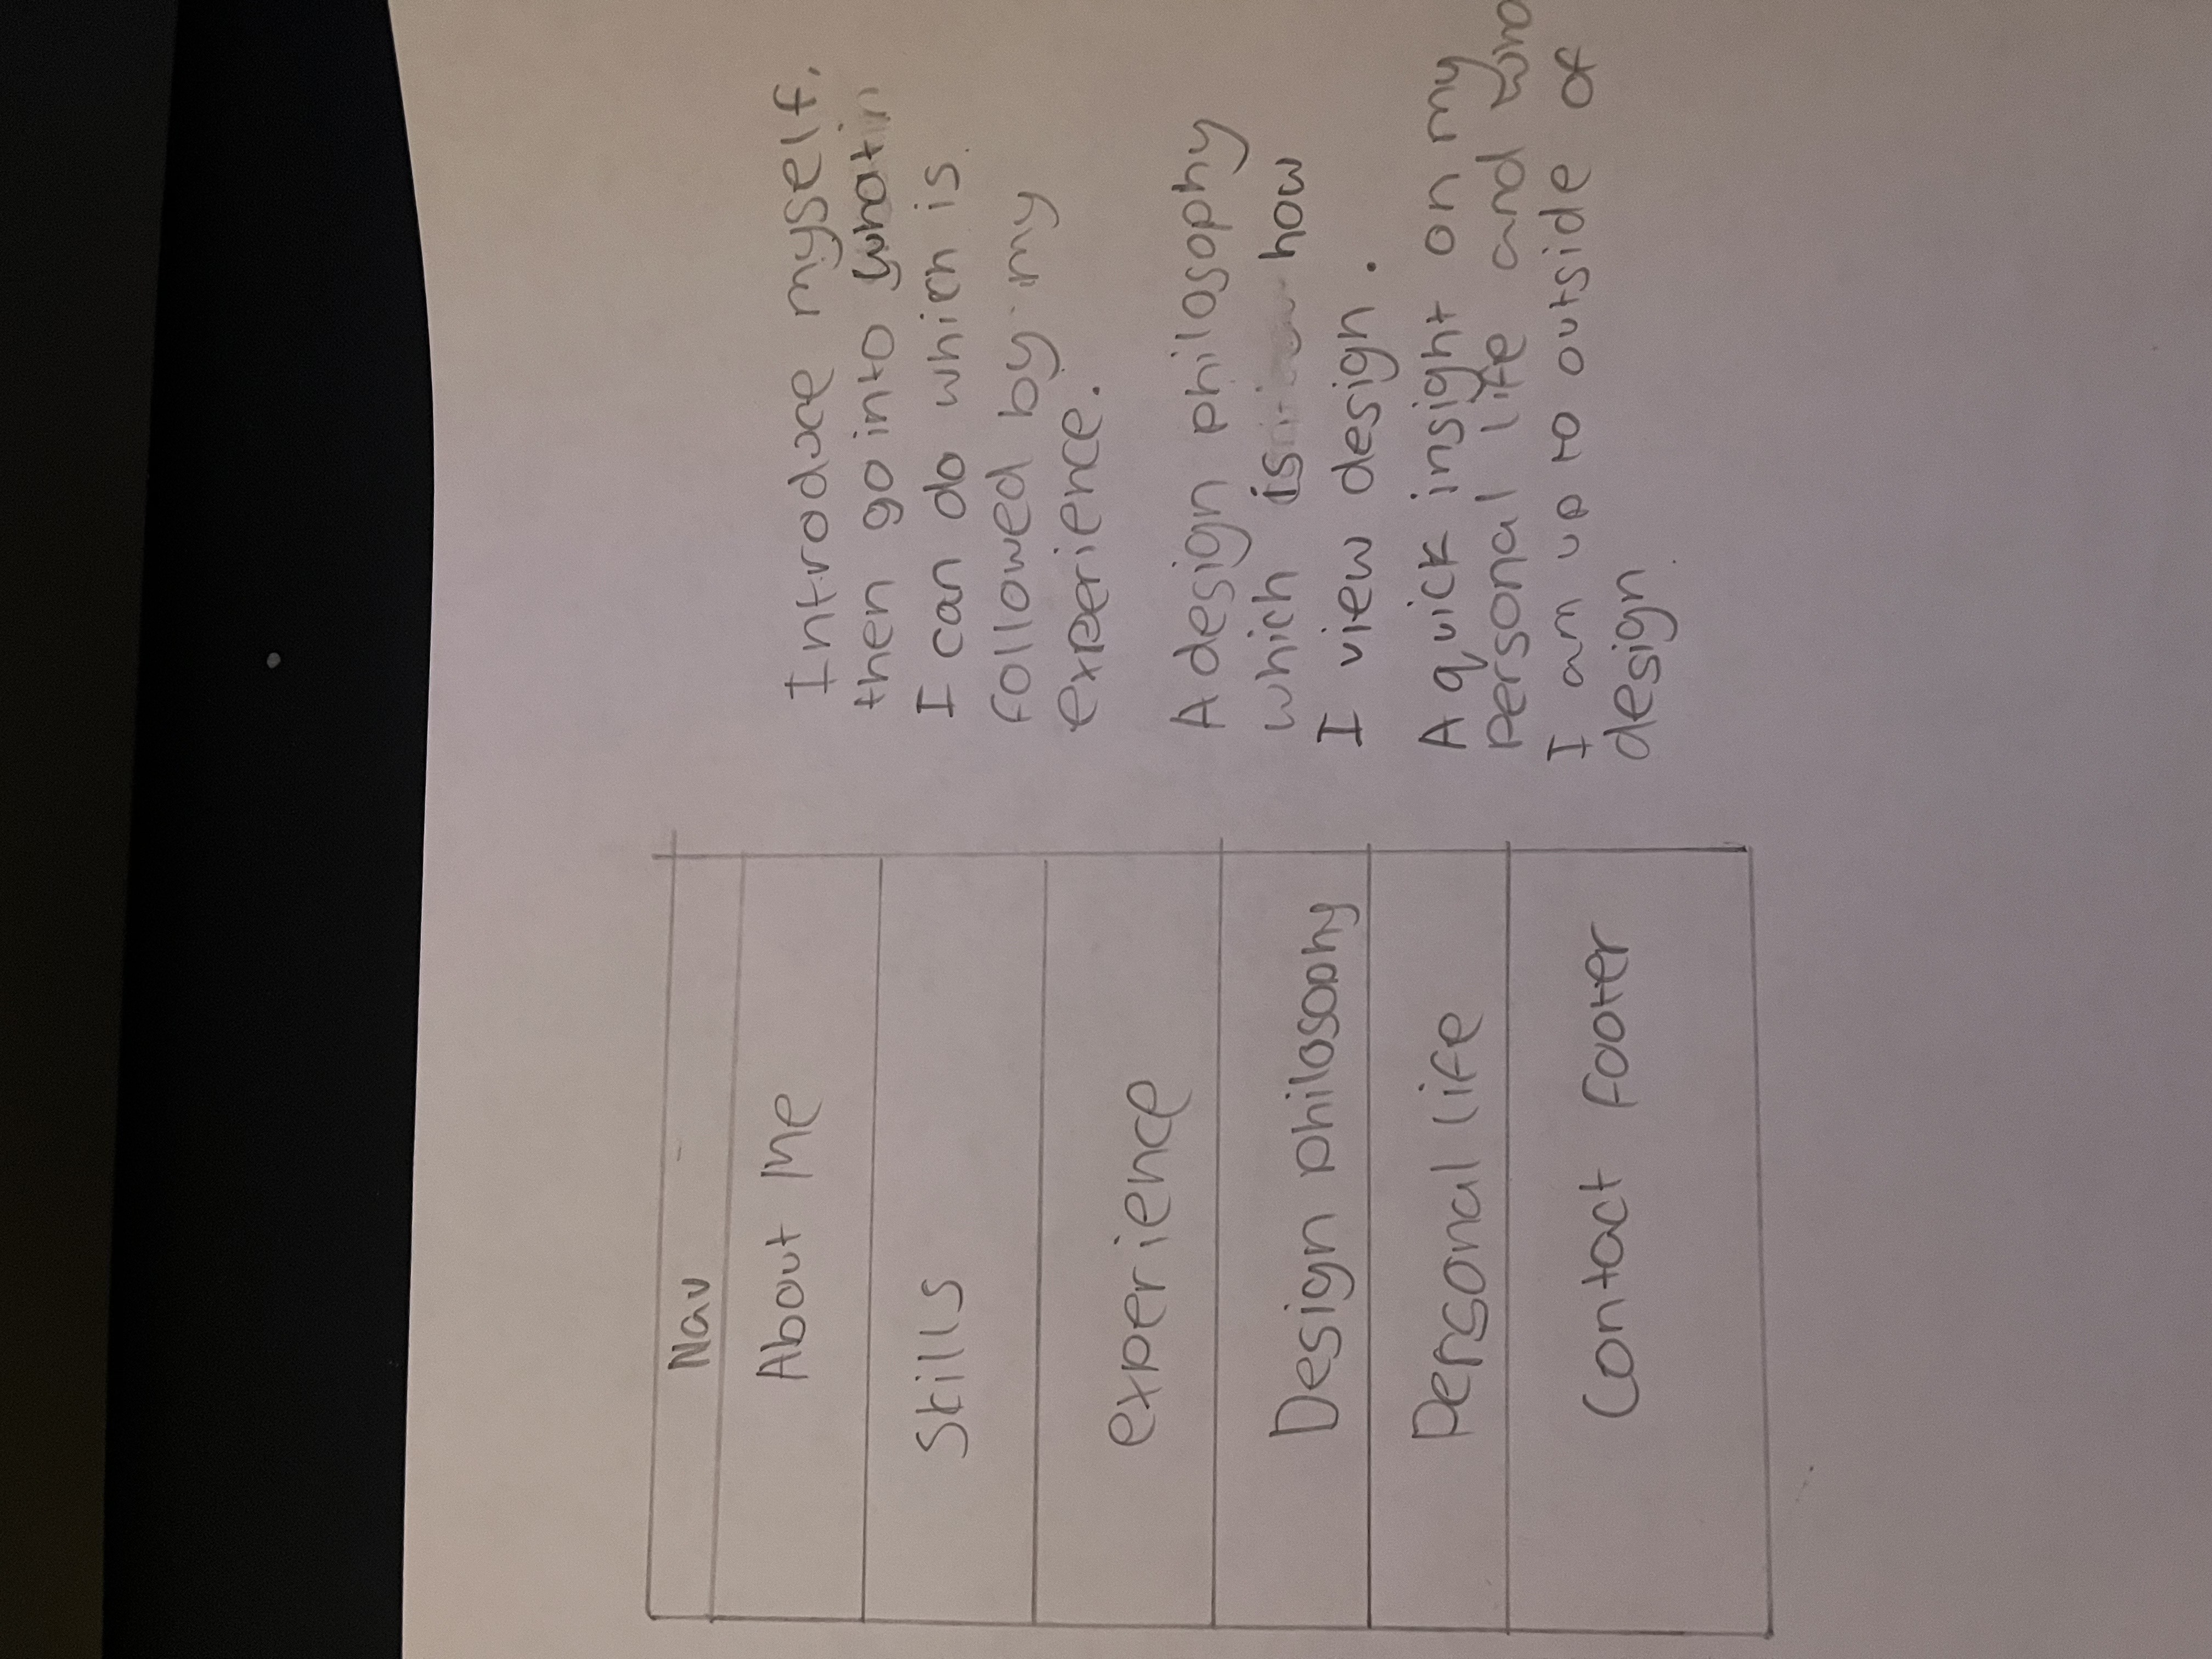 Nav
About Me
Skills
experience
Design philosophy
Personal life
Contact footer
Introduce myself,
then go into what
I can do which is
followed by my
experience.
A design philosophy
which is how
I view design.
A quick insight on my
personal life and
I am up to outside of
design